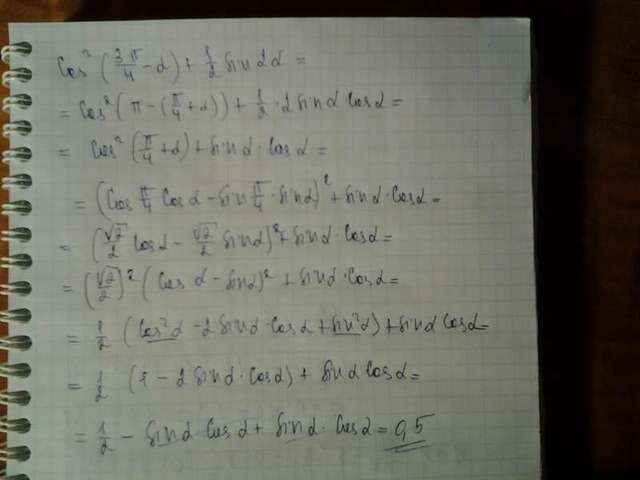 cos²(3π/4 - α) + 1/2 sin 2α =
= cos²(π - (π/4 + α)) + 1/2 · 2 sinα cosα =
= cos²(π/4 + α) + sinα · cosα =
= (cos π/4 cosα - sin π/4 · sinα)² + sinα · cosα =
= (√2/2 cosα - √2/2 sinα)² + sinα · cosα =
= (√2/2)² (cosα - sinα)² + sinα · cosα =
= 1/2 (cos²α - 2 sinα · cosα + sin²α) + sinα cosα =
= 1/2 (1 - 2 sinα · cosα) + sinα cosα =
= 1/2 - sinα cosα + sinα · cosα = 0,5